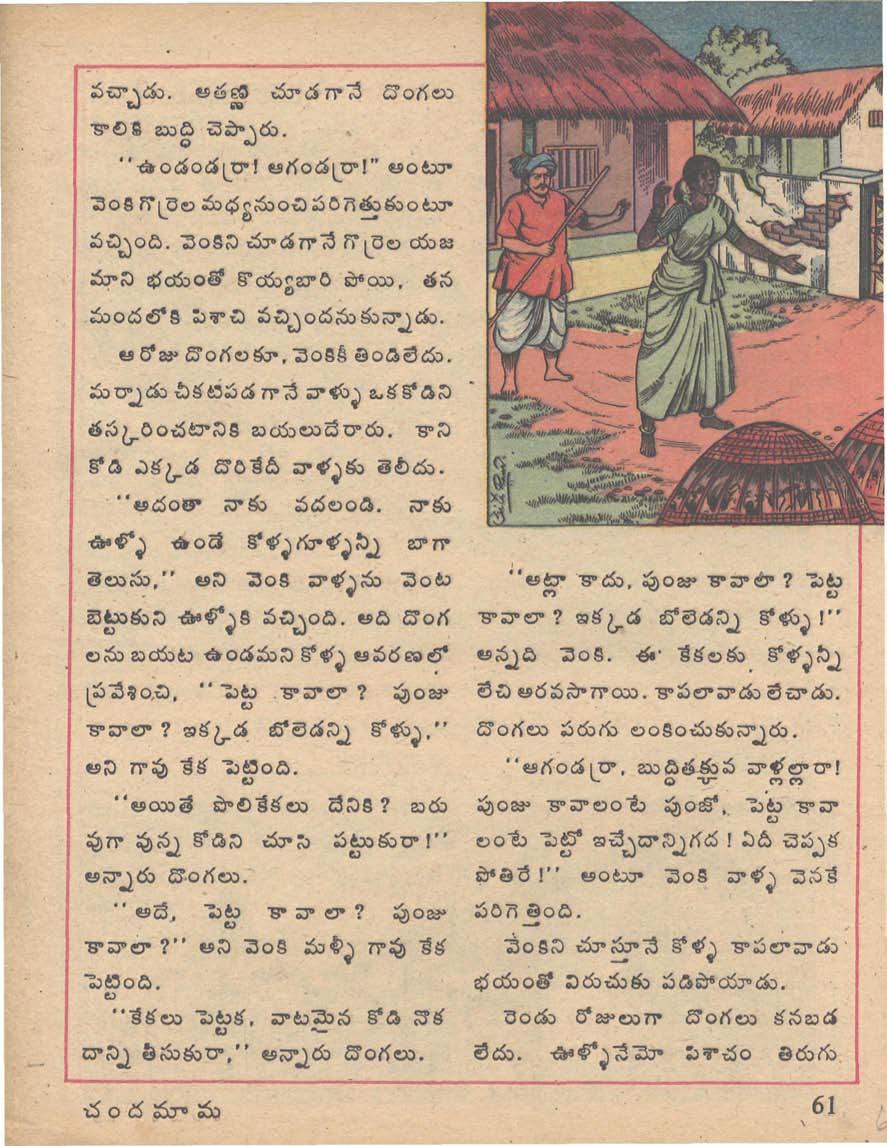 వచ్చాడు. అతణ్ణి చూడగానే దొంగలు
కాలికి బుద్ధి చెప్పారు.
‘‘ఉండండ్రరా! ఆగండ్రరా!’’ అంటూ
వెంకి గొర్రెల మధ్యనుంచి పరిగెత్తుకుంటూ
వచ్చింది. వెంకిని చూడగానే గొర్రెల యజ
మాని భయంతో కొయ్యబారి పోయి, తన
మందలోకి పిశాచి వచ్చిందనుకున్నాడు.
ఆ రోజు దొంగలకూ, వెంకికీ తిండిలేదు.
మర్నాడు చీకటిపడ గానే వాళ్ళు ఒకకోడిని
తస్కరించటానికి బయలుదేరారు. కాని
కోడి ఎక్కడ దొరికేదీ వాళ్ళకు తెలీదు.
‘‘అదంతా నాకు వదలండి. నాకు
ఊళ్ళో ఉండే కోళ్ళగూళ్ళన్నీ బాగా
తెలుసు,’’ అని వెంకి వాళ్ళను వెంట
బెట్టుకుని ఊళ్ళోకి వచ్చింది. అది దొంగ
లను బయట ఉండమని కోళ్ళ ఆవరణలో
ప్రవేశించి, ‘‘పెట్ట కావాలా? పుంజు
కావాలా? ఇక్కడ బోలెడన్ని కోళ్ళు,’’
అని గావు కేక పెట్టింది.
‘‘అయితే పొలికేకలు దేనికి? బరు
వుగా వున్న కోడిని చూసి పట్టుకురా!’’
అన్నారు దొంగలు.
‘‘అదే, పెట్ట కావాలా? పుంజు
కావాలా?’’ అని వెంకి మళ్ళీ గావు కేక
పెట్టింది.
‘‘కేకలు పెట్టక, వాటమైన కోడి నొక
దాన్ని తీసుకురా,’’ అన్నారు దొంగలు.
‘‘అట్లా కాదు, పుంజు కావాలా? పెట్ట
కావాలా? ఇక్కడ బోలెడన్ని కోళ్ళు!’’
అన్నది వెంకి. ఈ కేకలకు కోళ్ళన్నీ
లేచి అరవసాగాయి. కాపలావాడు లేచాడు.
దొంగలు పరుగు లంకించుకున్నారు.
‘‘ఆగండ్రరా, బుద్ధితక్కువ వాళ్లల్లారా!
పుంజు కావాలంటే పుంజో, పెట్ట కావా
లంటే పెట్టో ఇచ్చేదాన్నిగద! ఏదీ చెప్పక
పోతిరే!’’ అంటూ వెంకి వాళ్ళ వెనకే
పరిగెత్తింది.
వెంకిని చూస్తూనే కోళ్ళ కాపలావాడు
భయంతో విరుచుకు పడిపోయాడు.
రెండు రోజులుగా దొంగలు కనబడ
లేదు. ఊళ్ళోనేమో పిశాచం తిరుగు
చందమామ
61